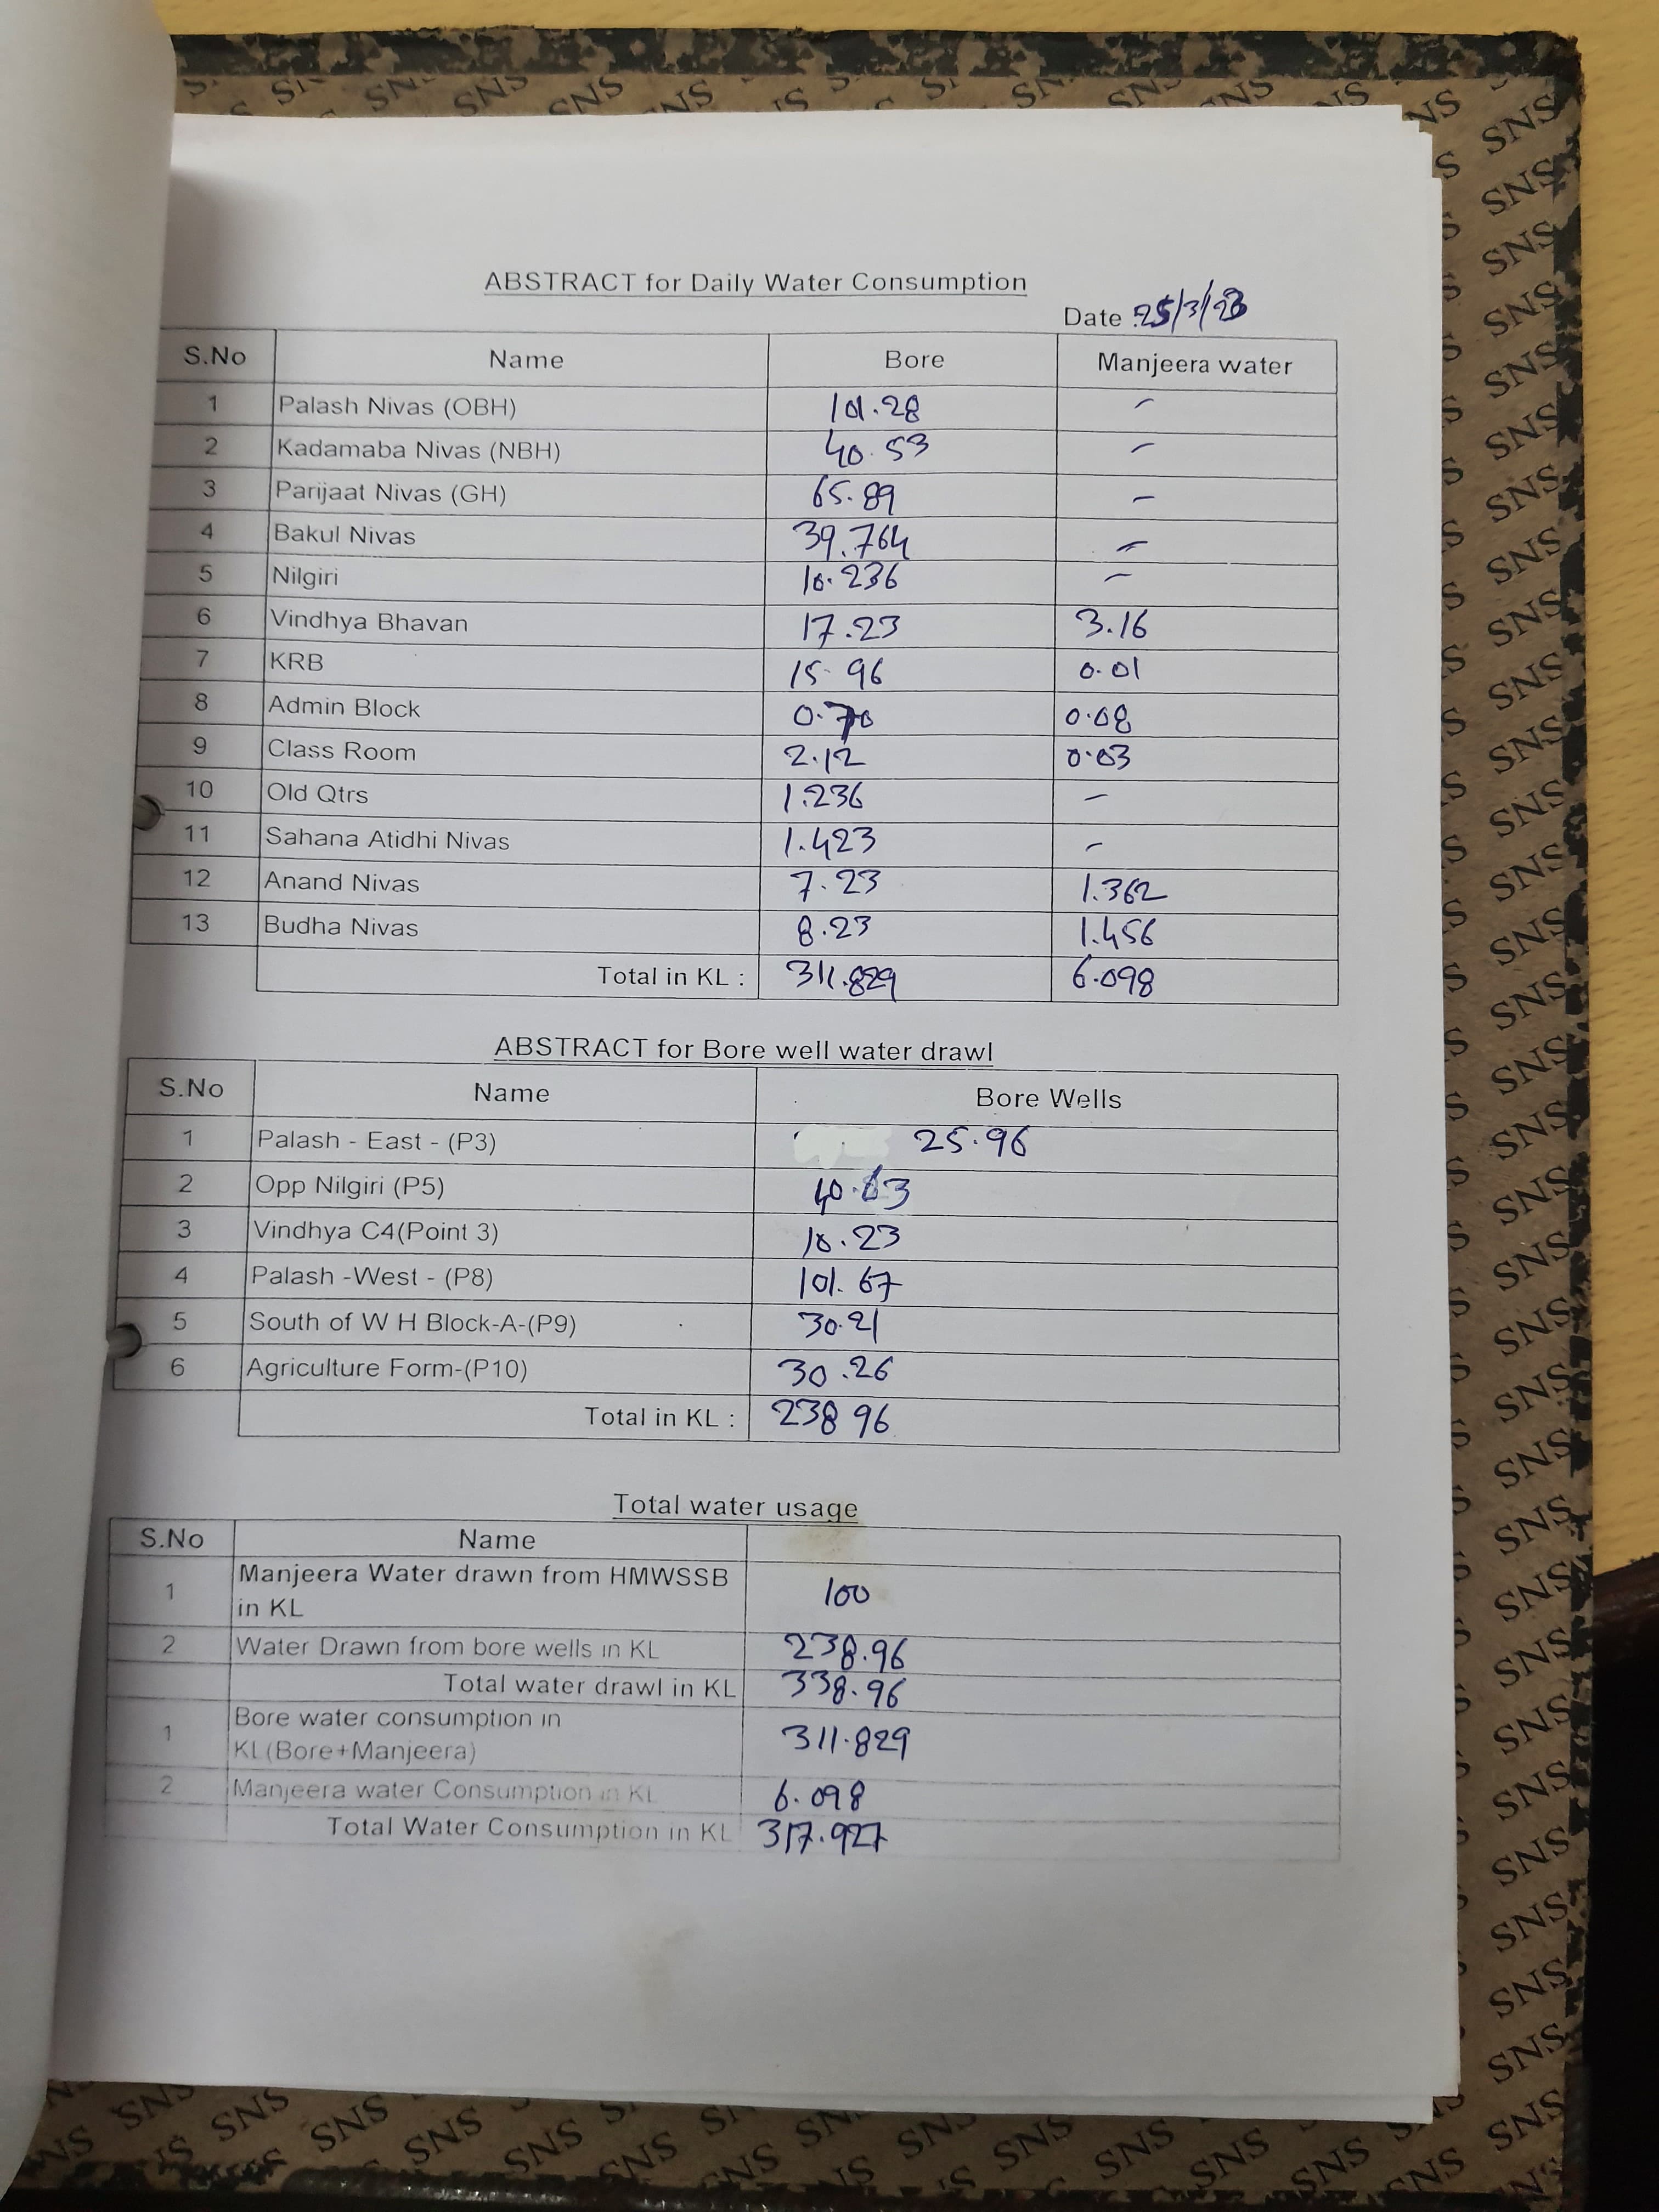 ABSTRACT for Daily Water Consumption
Date :25/3/23
S.No Name Bore Manjeera water
1 Palash Nivas (OBH) 101.28 -
2 Kadamaba Nivas (NBH) 40.53 -
3 Parijaat Nivas (GH) 65.89 -
4 Bakul Nivas 39.764 -
5 Nilgiri 10.236 -
6 Vindhya Bhavan 17.23 3.16
7 KRB 15.96 0.01
8 Admin Block 0.70 0.08
9 Class Room 2.12 0.03
10 Old Qtrs 1.236 -
11 Sahana Atidhi Nivas 1.423 -
12 Anand Nivas 7.23 1.362
13 Budha Nivas 8.23 1.456
Total in KL : 311.829 6.098
ABSTRACT for Bore well water drawl
S.No Name Bore Wells
1 Palash - East - (P3) 25.96
2 Opp Nilgiri (P5) 40.63
3 Vindhya C4(Point 3) 10.23
4 Palash -West - (P8) 101.67
5 South of W H Block-A-(P9) 30.21
6 Agriculture Form-(P10) 30.26
Total in KL : 238 96
Total water usage
S.No Name
1 Manjeera Water drawn from HMWSSB
in KL 100
2 Water Drawn from bore wells in KL 238.96
Total water drawl in KL 338.96
1 Bore water consumption in
KL(Bore+Manjeera) 311.829
2 Manjeera water Consumption in KL 6.098
Total Water Consumption in KL 317.927